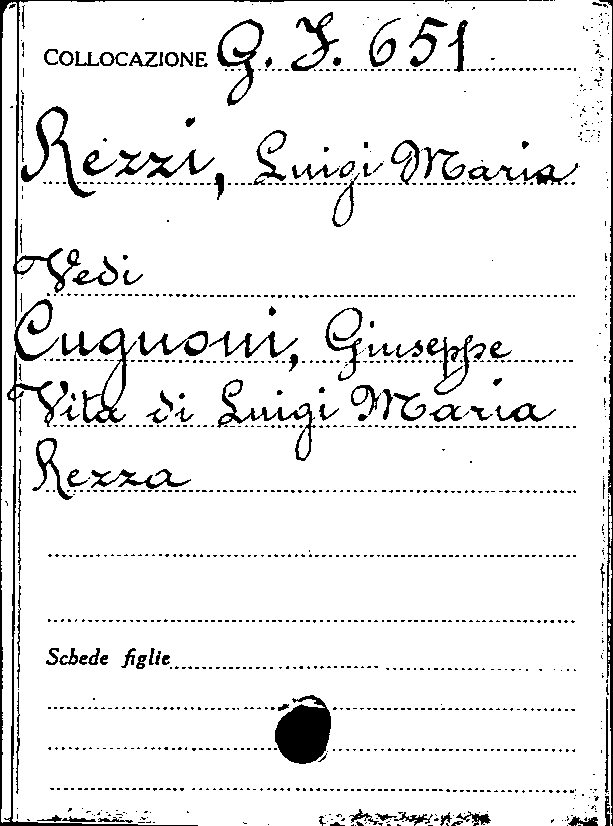 COLLOCAZIONE G. J. 651
Rezzi, Luigi Maria
Vedi
Cugnoni, Giuseppe
Vita di Luigi Maria
Rezza
Schede figlie